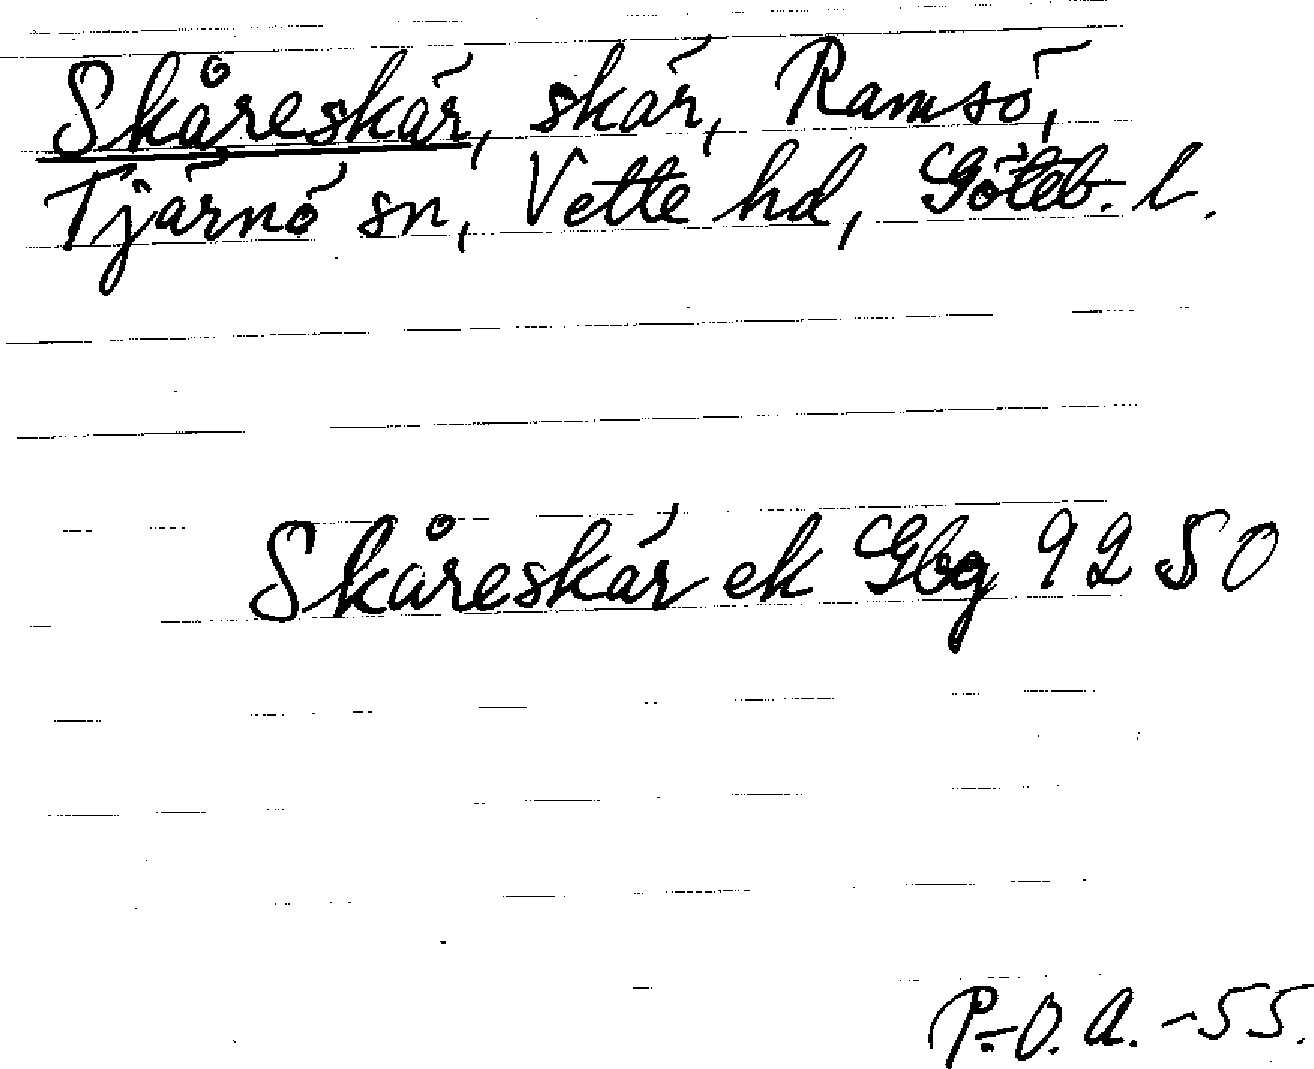 Skåreskär, skär, Ramsö,
Tjärnö sn, Vette hd, Göteb. l.
Skåreskär ek Gbg 92 50
P.-O. A. -55.